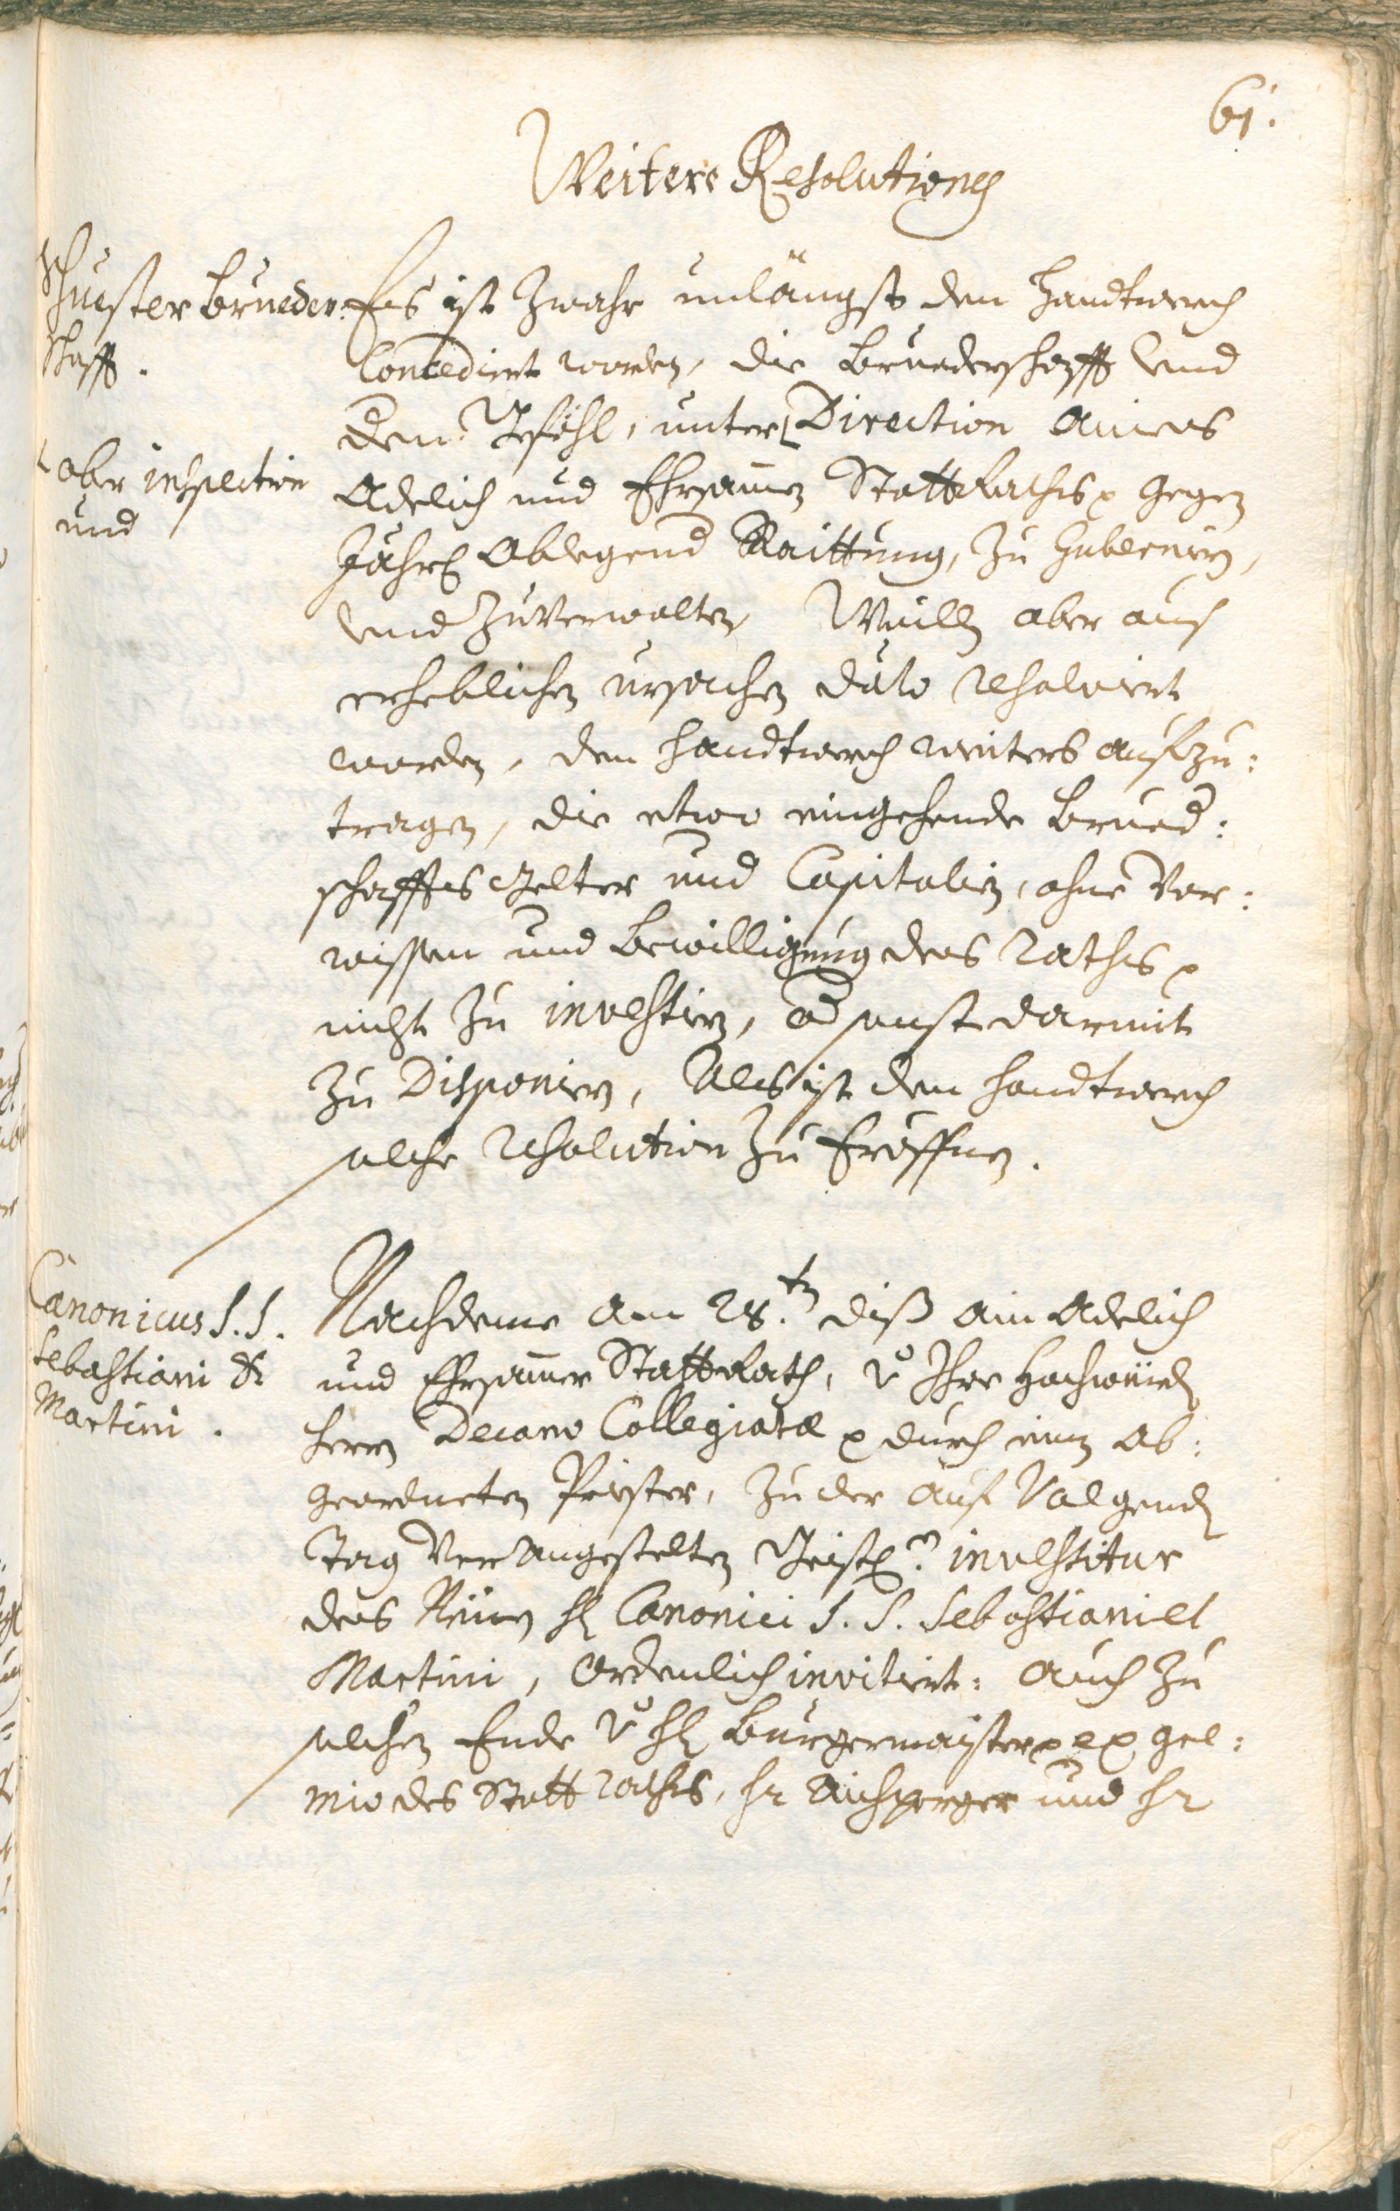 61.
Weitere Resolutiones
Schuester Brueder-
schafft.
Es ist zwahr unlängst dem Handtwerch
Concediert worden, die Bruederschafft und
deren Gföhl, unter Direction Aines
ober inspection
und
Adelich und Ehrsamen StattRathes gegen
Jährl Ablegend Raittung, zu guberniern,
und zuverwalten, Weillen aber aus
erheblichen ursachen dato resolviert
worden, dem Handtwerch weiters aufzu:
tragen, die etwo eingehende Brued:
schaffts Gelter und Capitalien, ohne Vor:
wissen und Bewilligung des Raths
nicht zu investiern, od sonst darmit
zu Disponiern, Als ist dem Handtwerch
solche resolution zu Eröffnen.
Canonicus S. S.
Sebastiani &
Martini.
Nachdeme am 28.tn diss ain Adelich
und Ehrsamer StattRath, v Ihro Hochwürd
Herrn Decano Collegiatæ durch einen Ab:
geordneten Priester, zu der auf Volgend
Tag Verangestelten Geistl.n investitur
des Neuen H Canonici S. S. Sebastiani et
Martini, Ordenlich invitiert: auch zu
solchen Ende v H Burgermaister ex gre:
mio des Statt raths, Hr Aichperger und Hr